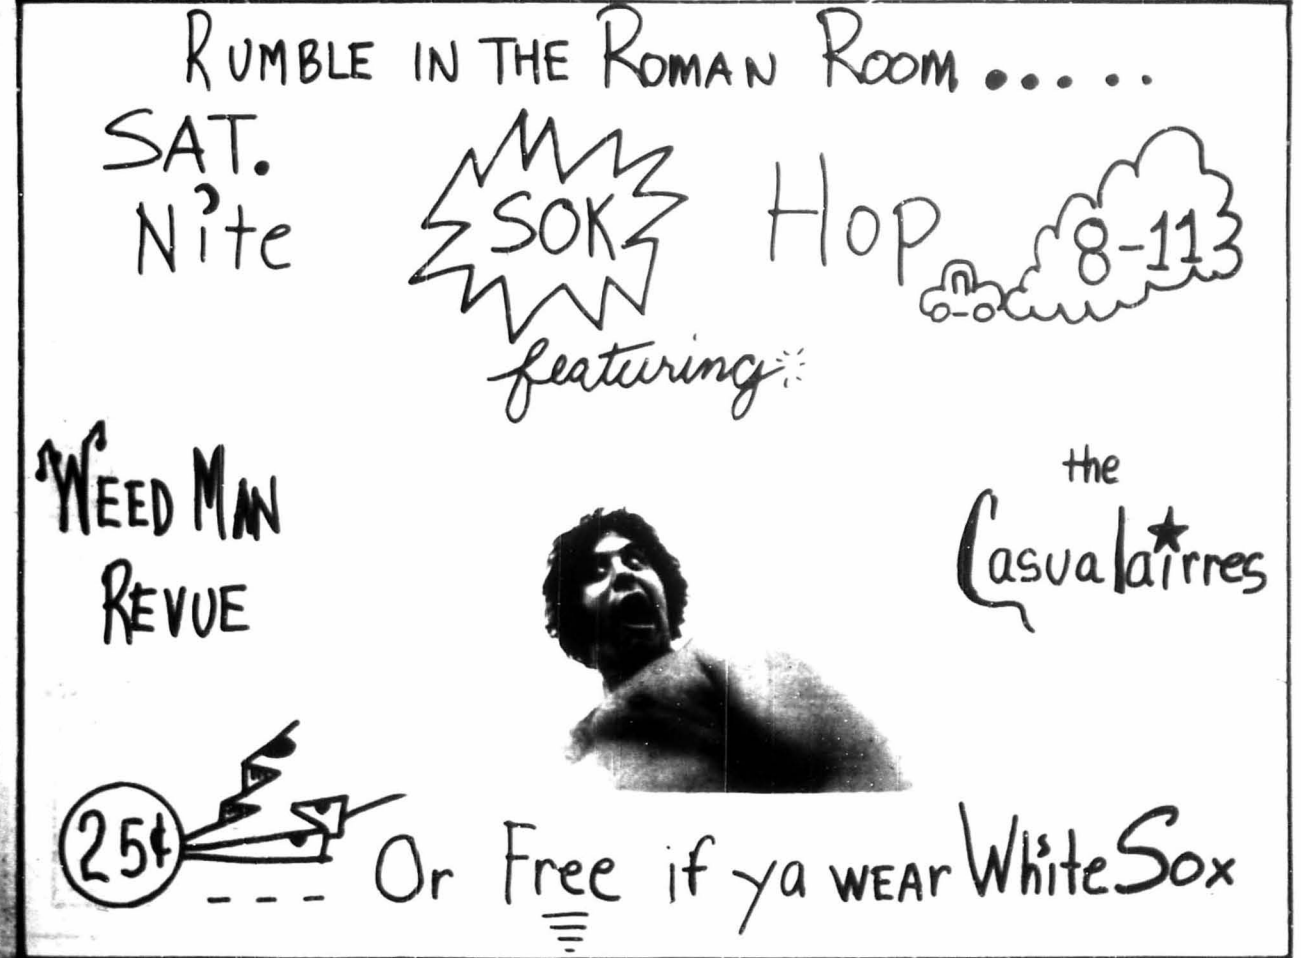 RUMBLE IN THE ROMAN ROOM.....
SAT.
Nite
SOK
Hop
8-11
featuring
WEED MAN
REVUE
the
Casualairres
25¢
Or Free if ya WEAr White Sox